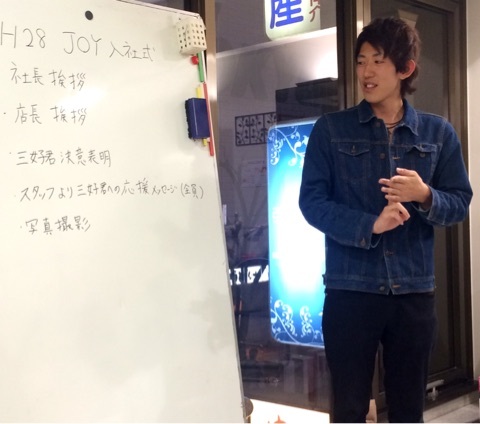 H28 JOY 入社式
社長挨拶
・店長 挨拶
三好君 決意表明
・スタッフより三好君への応援メッセージ(全員)
・写真撮影
産